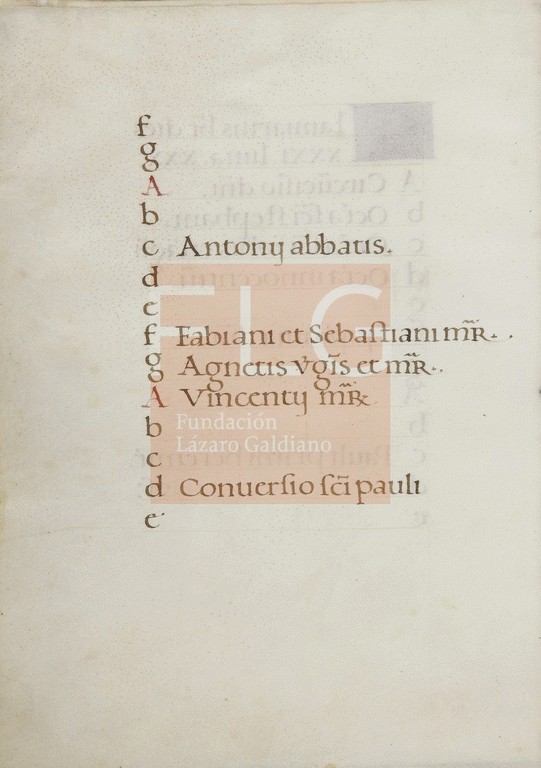 f
g
A
b
c Antonij abbatis.
d
e
f Fabiani et Sebaſtiani m̃R̃.
g Agnetis v̾gĩs et m̃R̃.
A Vincentij m̃R̃
b
c
d Conuerſio ſc̃i pauli
e
FLG
Fundación
Lázaro Galdiano